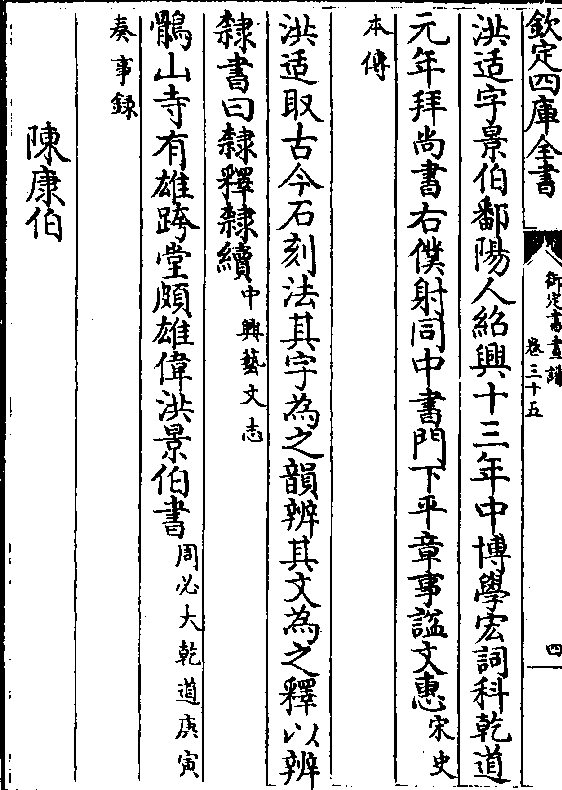 欽定四庫全書
御定書畫譜
卷三十五
四
洪适字景伯鄱陽人紹興十三年中博學宏詞科乾道
元年拜尚書右僕射同中書門下平章事諡文惠宋史
本傳
洪适取古今石刻法其字為之韻辨其文為之釋以辨
隸書曰隸釋隸續中興藝文志
鵝山寺有雄跨堂頗雄偉洪景伯書周必大乾道庚寅
奏事録
陳康伯